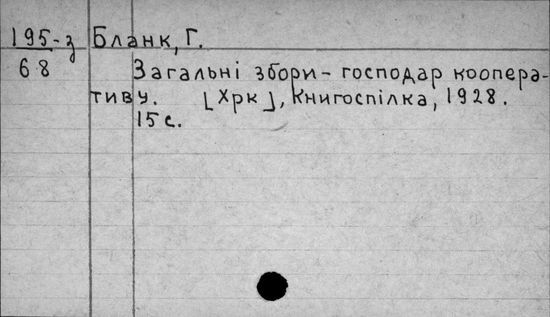 195-з Бланк, Г.
68 Загальні збори - господар коопера-
тиву. [Хрк], Книгоспілка, 1928.
15 с.